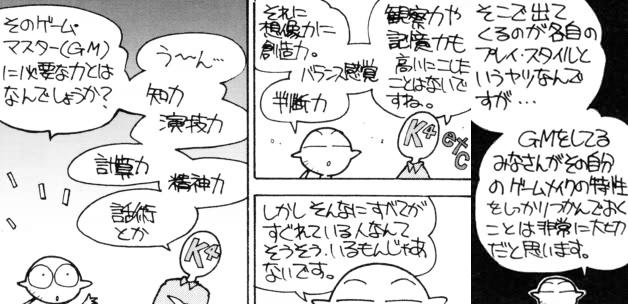 そのゲーム
マスター(GM)
に必要な力とは
なんでしょうか?
う〜ん…
知力
演技力
計算力
精神力
話術
とか
K4
観察力や
記憶力も
高いにこした
ことはないで
すね。
それに
想像力に
創造力。
バランス感覚
判断力
K4
etc
しかし そんなにすべてが
すぐれている人なんて
そうそう、いるもんじゃあ
ないです。
そこで出て
くるのが各自の
プレイ・スタイルと
いうヤツなんで
すが・・・
GMをしてる
みなさんがその自分
のゲームメイクの特性
をしっかりつかんでおく
ことは非常に大切
だと思います。